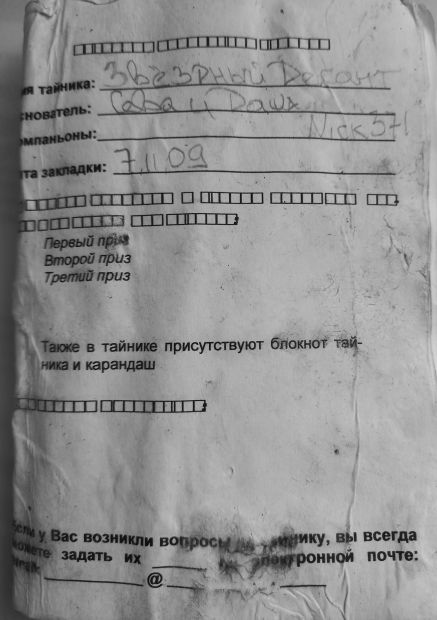 тайника: Звёздный Десант
Сава и Даша
Nick371
закладки: 7.11 09
Первый приз
Второй приз
Третий приз
Также в тайнике присутствуют блокнот тай-
ника и карандаш
у Вас возникли вопросы вы всегда
задать их ______ почте:
______@______